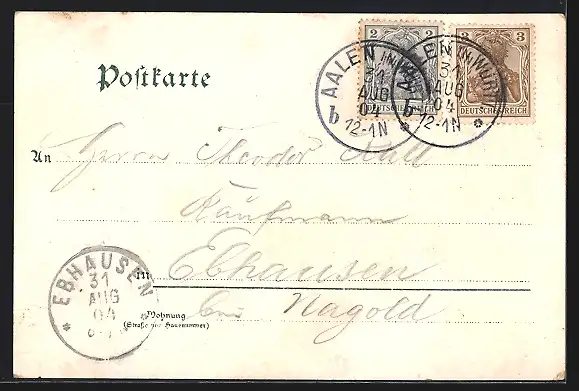 2 3
AALEN IN WÜRTT
31
AUG
04
12-1N
b
DEUTSCHES REICH
AALEN IN WÜRTT
31
AUG
04
12-1N
b
DEUTSCHES REICH
Postkarte
An Herrn Theodor
Kaufmann
in Ebhausen
bei Nagold
EBHAUSEN
31
AUG
04
Wohnung
(Straße und Hausnummer)